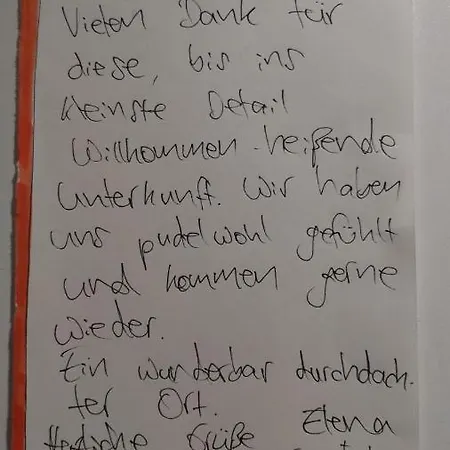 Vielen Dank für
diese, bis ins
kleinste Detail
Willkommen-heißende
Unterkunft. Wir haben
uns pudelwohl gefühlt
und kommen gerne
wieder.
Ein wunderbar durchdach-
ter Ort.
Elena
Herzliche Grüße